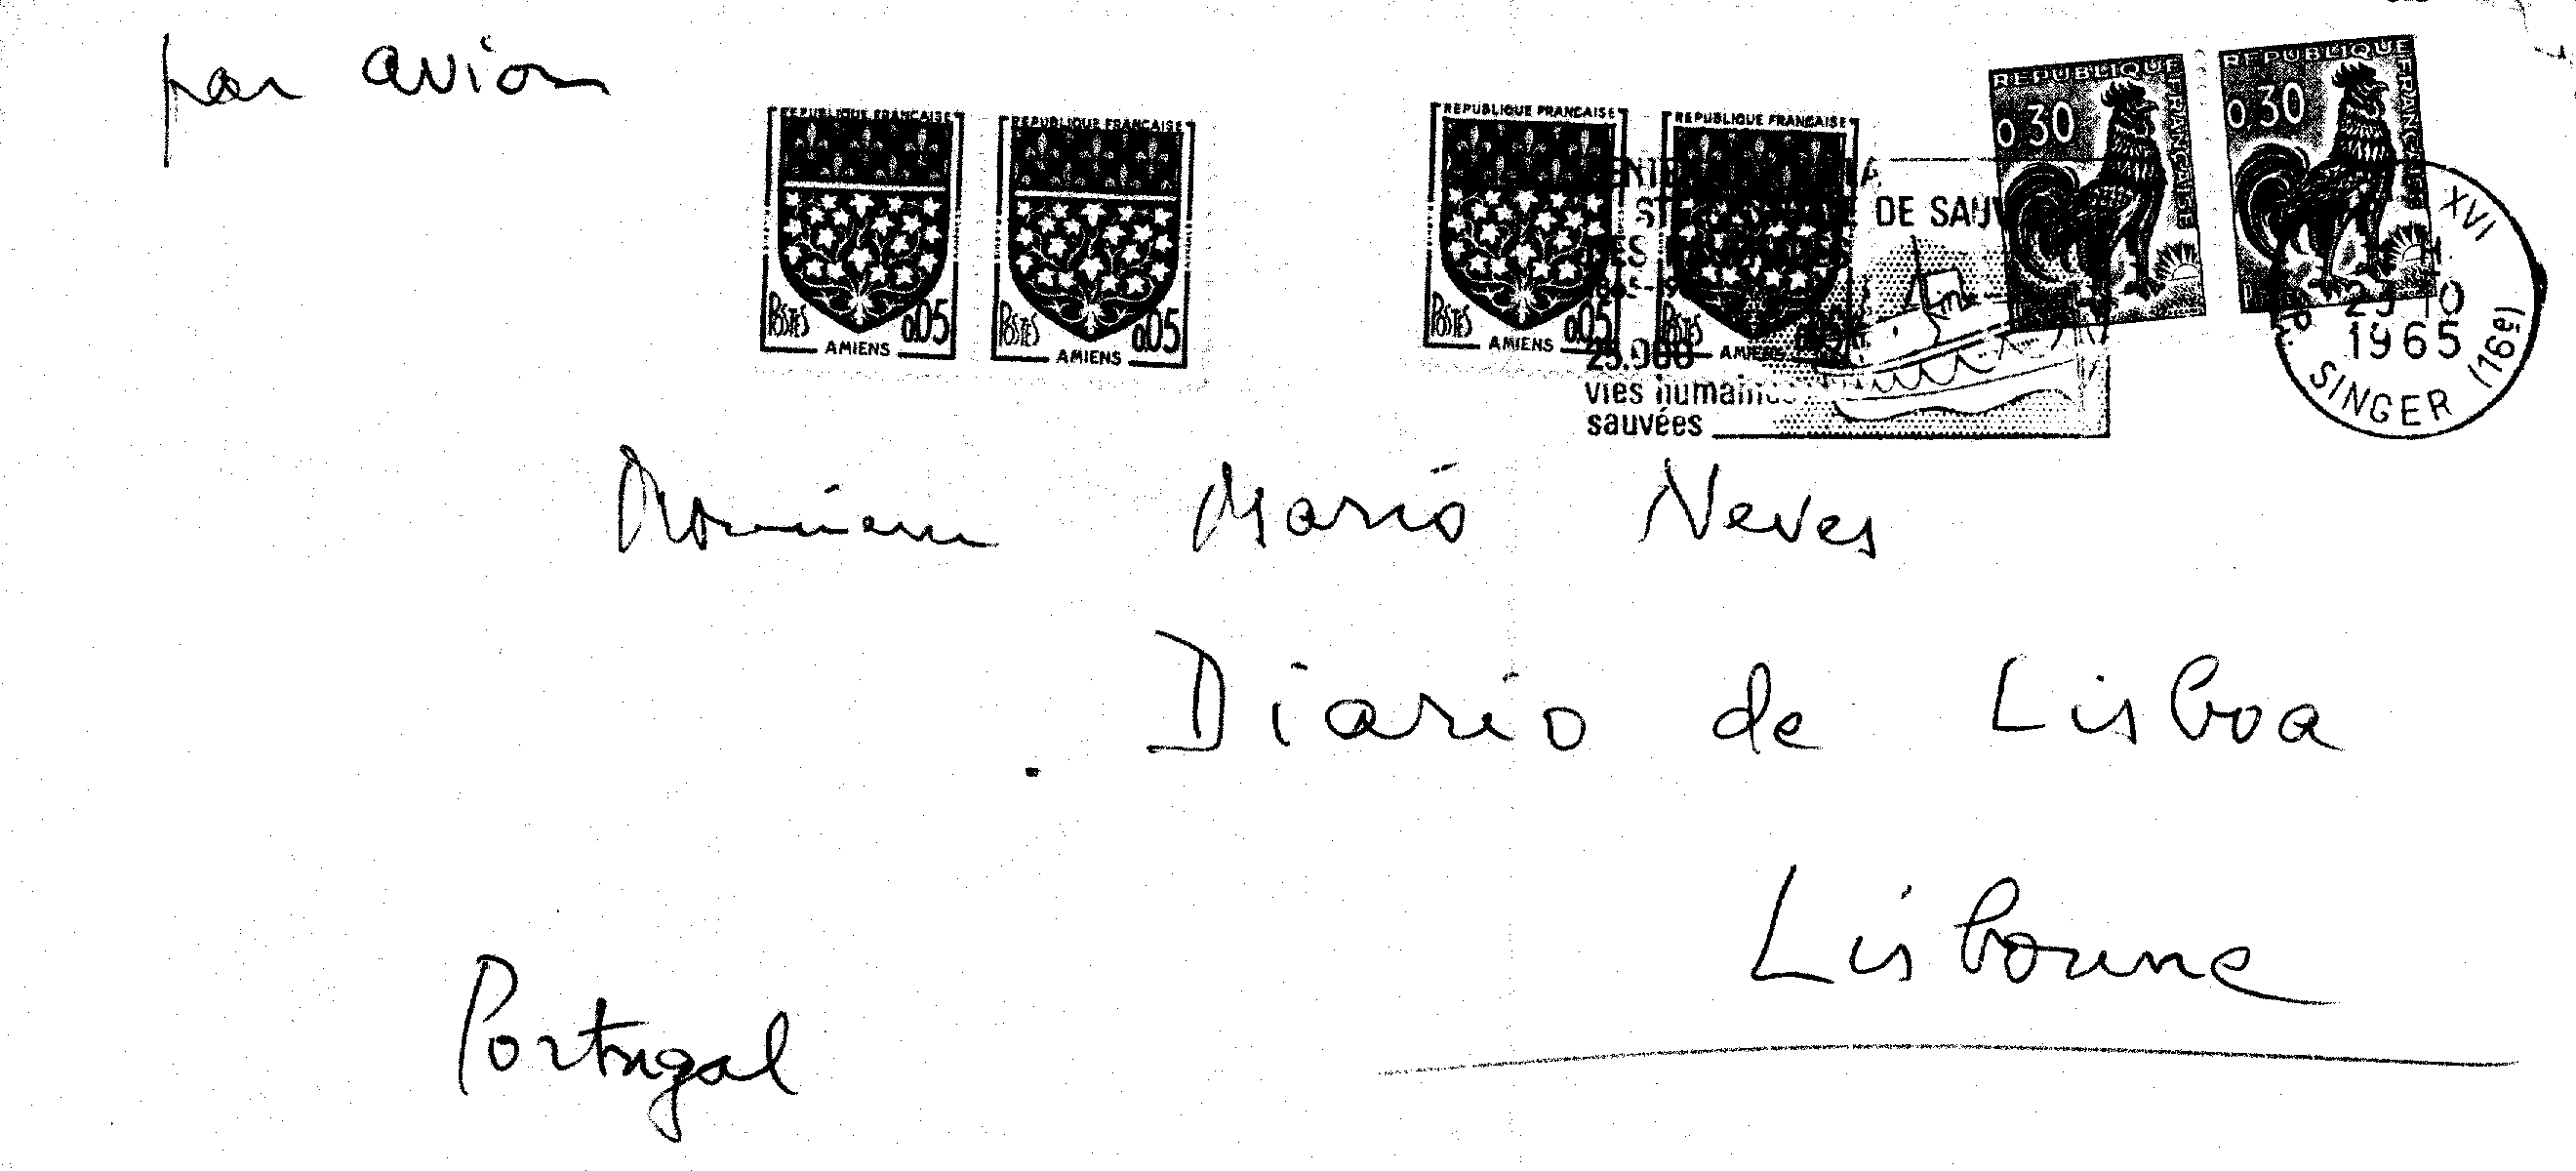 par avion
REPUBLIQUE FRANÇAISE
POSTES 0,05
AMIENS
REPUBLIQUE FRANÇAISE
POSTES 0,05
AMIENS
REPUBLIQUE FRANÇAISE
POSTES 0,05
AMIENS
REPUBLIQUE FRANÇAISE
POSTES
AMIENS
REPUBLIQUE FRANÇAISE
0,30
REPUBLIQUE FRANÇAISE
0,30
DE
25.000
vies humaines
sauvées
XVI
10
1965
SINGER (16e)
Monsieur Mario Neves
Diario de Lisboa
Lisbonne
Portugal